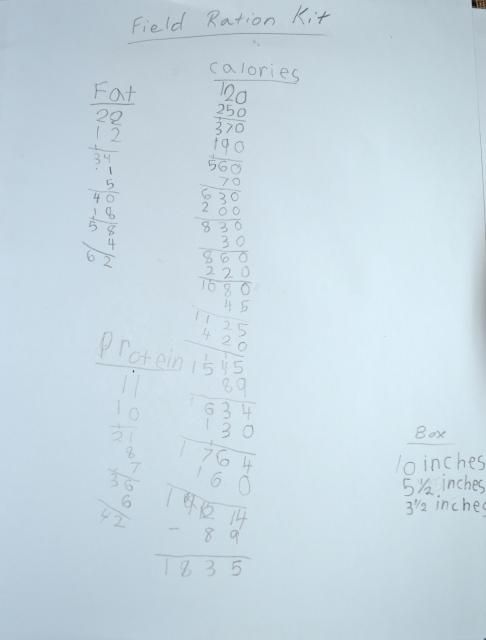 Field Ration Kit
Fat
22
12
34
1
5
40
18
58
4
62
Calories
120
250
370
190
560
70
630
200
830
30
860
220
1080
45
1125
420
1545
89
1634
130
1764
160
- 89
1835
Protein
11
10
21
8
7
36
6
42
Box
10 inches
5 1/2 inches
3 1/2 inches